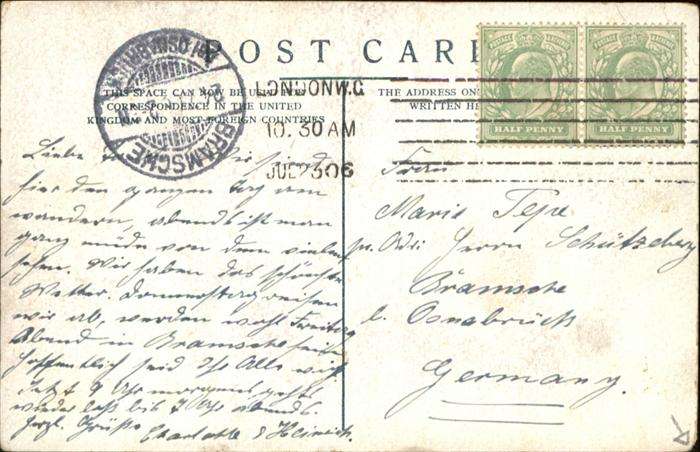 POST CARD
THIS SPACE CAN NOW BE USED FOR
CORRESPONDENCE IN THE UNITED
KINGDOM AND MOST FOREIGN COUNTRIES
THE ADDRESS ON
WRITTEN HE
BRAMSCHE
LONDON W.C
10.30 AM
JUL 23 06
HALF PENNY
HALF PENNY
Liebe
hier den ganzen Tag am
wandern, abends ist man
ganz müde von dem vielen
sehen. Wir haben das schönste
Wetter. Donnerstag reisen
wir ab, werden wohl Freitag
Abend in Bramsche sein
hoffentlich seid Ihr Alle
Jetzt 9 Uhr morgens geht
wieder los bis 7 Uhr abends.
herzl. Grüße Charlotte & Heinrich.
Frau
Marie Tepe
Herrn Schützeberg
Bramsche
b. Osnabrück
Germany.